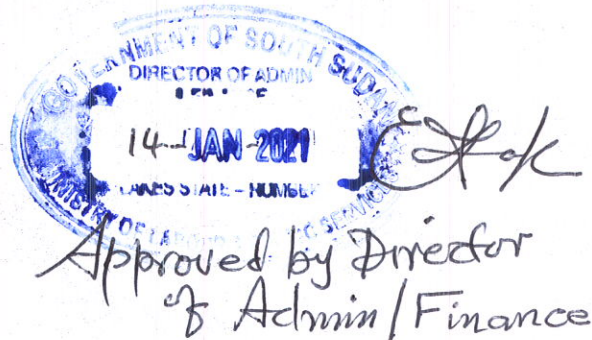 GOVERNMENT OF SOUTH SUDAN
DIRECTOR OF ADMIN
14 - JAN - 2021
LAKES STATE - RUMBEK
MINISTRY OF LABOUR SERVICE
Approved by Director
of Admin/Finance